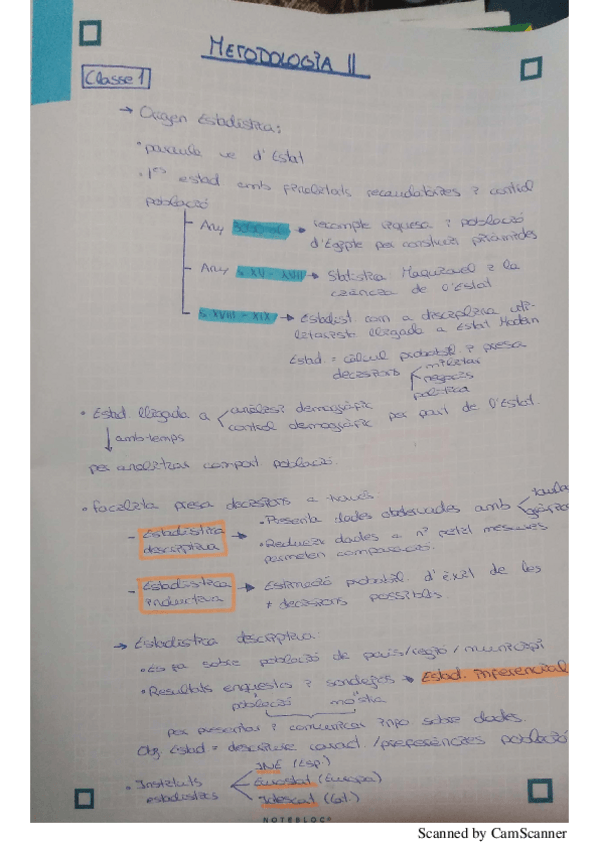 METODOLOGIA II
Classe 1
→ Origen estadística:
• paraula ve d'Estat
• 1es estad amb finalitats recaudatòries i control
població
Any 3000 a.C → recompte riquesa i població
d'Egipte per construir piràmides
Any s. XV - XVII → Statistica Maquiavel i la
ciència de l'Estat
s. XVIII - XIX → Estadíst. com a disciplina uti-
litarista lligada a Estat Modern
Estad = càlcul probabil i presa
decisions militar
negocis
política
• Estad. lligada a anàlisi demogràfic
control demogràfic per part de l'Estat.
↓ amb temps
per analitzar comport. població.
• Facilita presa decisions a través
- Estadística descriptiva → • Presenta dades observades amb taula
gràfics
• Reduir dades a nº petit mesures
permeten comparació.
- Estadística inductiva → Estimació probabil. d'èxit de les
≠ decisions possibles.
→ Estadística descriptiva:
• es fa sobre població de país/regió/municipi
• Resultats enquestes i sondejos → Estad. inferencial
població mostra
per presentar i comunicar info sobre dades.
Obj Estad = descriure caract./preferències població
• Instituts estadístics INE (Esp.)
Eurostat (Europa)
Idescat (Cat.)
NOTEBLOCK
Scanned by CamScanner